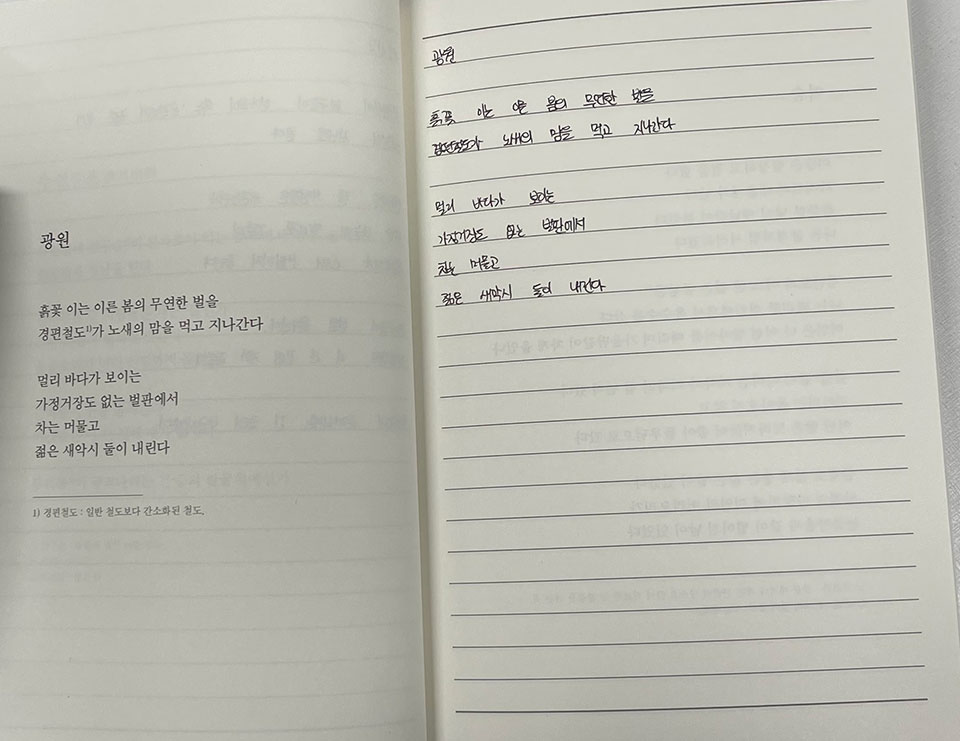 광원
흙꽃 이는 이른 봄의 무연한 벌을
경편철도1)가 노새의 맘을 먹고 지나간다
멀리 바다가 보이는
가정거장도 없는 벌판에서
차는 머물고
젊은 새악시 둘이 내린다
1) 경편철도 : 일반 철도보다 간소화된 철도.
광원
흙꽃 이는 이른 봄의 무연한 벌을
경편철도가 노새의 맘을 먹고 지나간다
멀리 바다가 보이는
가정거장도 없는 벌판에서
차는 머물고
젊은 새악시 둘이 내린다